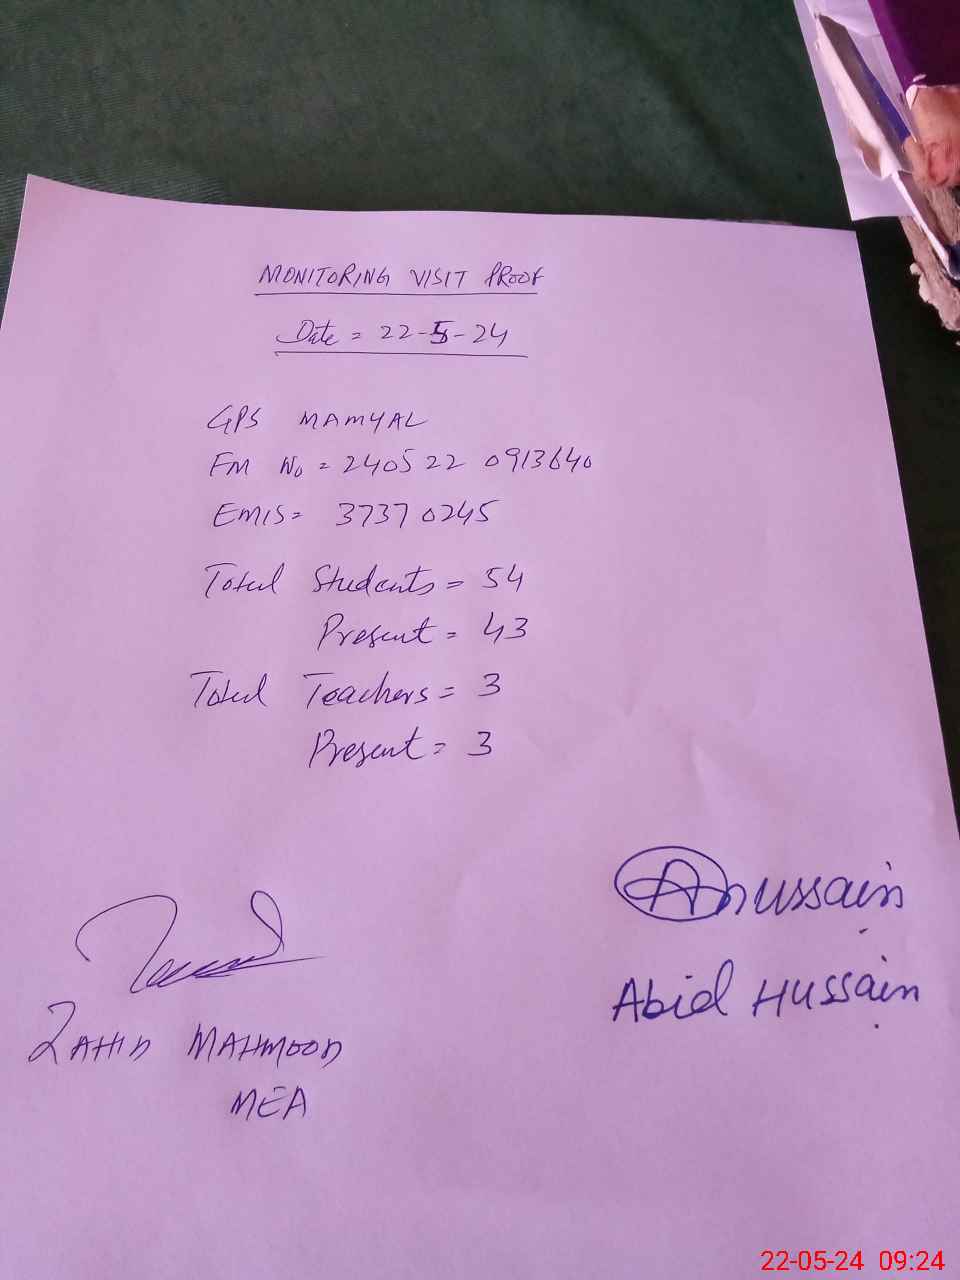 MONITORING VISIT PROOF
Date = 22-5-24
GPS MAMYAL
FM No = 240522 0913640
EMIS= 37370245
Total Students = 54
Present = 43
Total Teachers = 3
Present = 3
Ahussain
Abid Hussain
ZAHID MAHMOOD
MEA
22-05-24 09:24